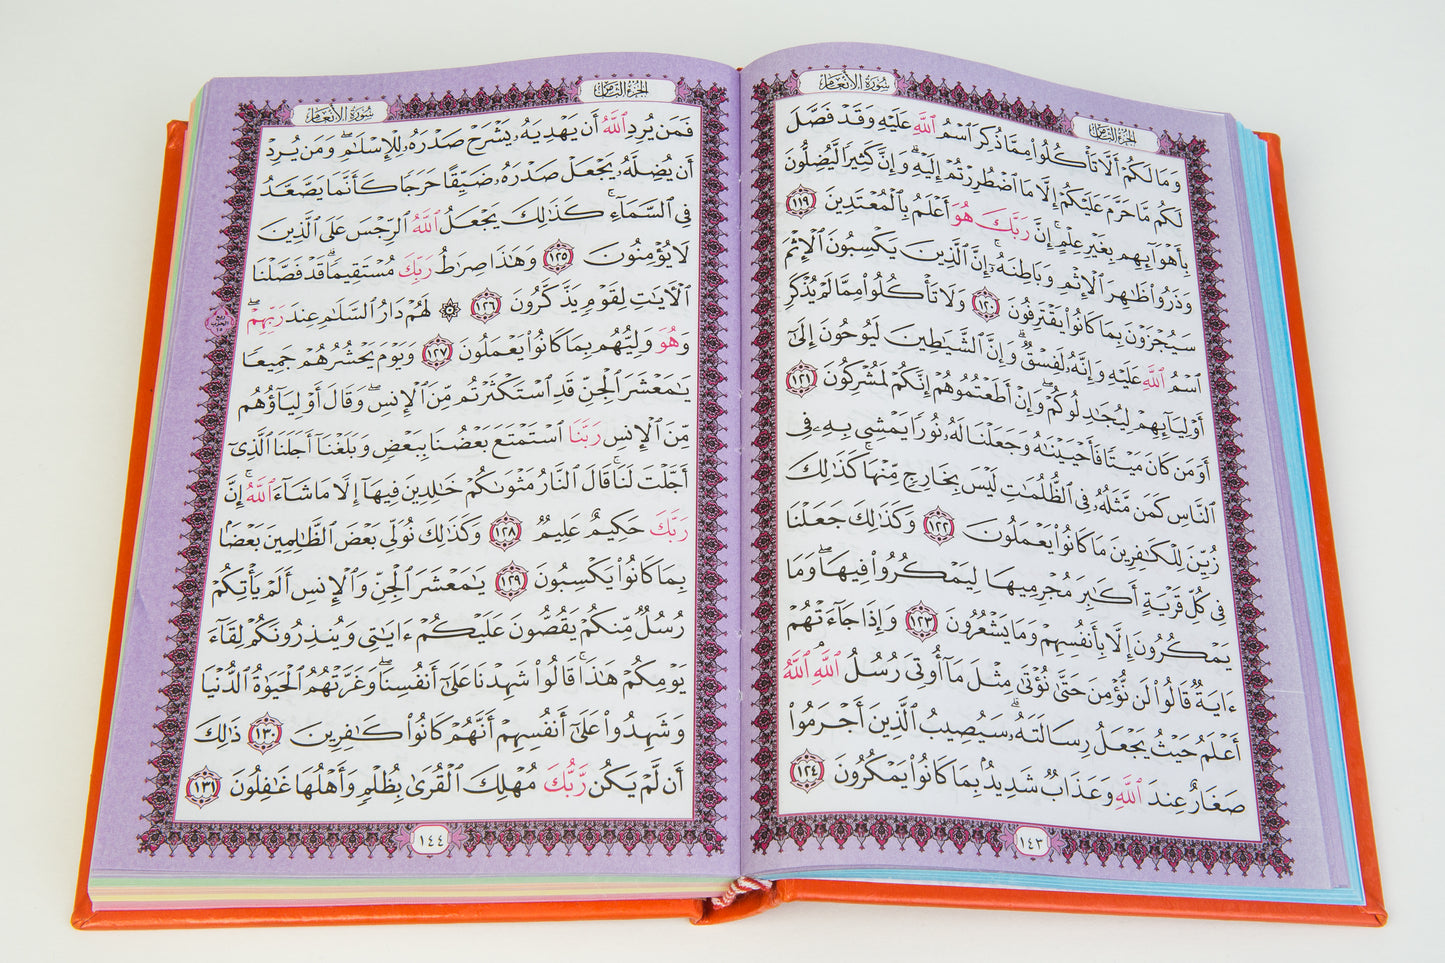 سُورَةُ الأَنْعَام
الجُزْءُ الثَّامِن
وَمَا لَكُمْ أَلَّا تَأْكُلُوا۟ مِمَّا ذُكِرَ ٱسْمُ ٱللَّهِ عَلَيْهِ وَقَدْ فَصَّلَ
لَكُم مَّا حَرَّمَ عَلَيْكُمْ إِلَّا مَا ٱضْطُرِرْتُمْ إِلَيْهِ ۗ وَإِنَّ كَثِيرًا لَّيُضِلُّونَ
بِأَهْوَآئِهِم بِغَيْرِ عِلْمٍ ۗ إِنَّ رَبَّكَ هُوَ أَعْلَمُ بِٱلْمُعْتَدِينَ ١١٩
وَذَرُوا۟ ظَٰهِرَ ٱلْإِثْمِ وَبَاطِنَهُۥٓ ۚ إِنَّ ٱلَّذِينَ يَكْسِبُونَ ٱلْإِثْمَ
سَيُجْزَوْنَ بِمَا كَانُوا۟ يَقْتَرِفُونَ ١٢٠ وَلَا تَأْكُلُوا۟ مِمَّا لَمْ يُذْكَرِ
ٱسْمُ ٱللَّهِ عَلَيْهِ وَإِنَّهُۥ لَفِسْقٌ ۗ وَإِنَّ ٱلشَّيَٰطِينَ لَيُوحُونَ إِلَىٰٓ
أَوْلِيَآئِهِمْ لِيُجَٰدِلُوكُمْ ۖ وَإِنْ أَطَعْتُمُوهُمْ إِنَّكُمْ لَمُشْرِكُونَ ١٢١
أَوَمَن كَانَ مَيْتًا فَأَحْيَيْنَٰهُ وَجَعَلْنَا لَهُۥ نُورًا يَمْشِى بِهِۦ فِى
ٱلنَّاسِ كَمَن مَّثَلُهُۥ فِى ٱلظُّلُمَٰتِ لَيْسَ بِخَارِجٍ مِّنْهَا ۚ كَذَٰلِكَ
زُيِّنَ لِلْكَٰفِرِينَ مَا كَانُوا۟ يَعْمَلُونَ ١٢٢ وَكَذَٰلِكَ جَعَلْنَا
فِى كُلِّ قَرْيَةٍ أَكَٰبِرَ مُجْرِمِيهَا لِيَمْكُرُوا۟ فِيهَا ۖ وَمَا
يَمْكُرُونَ إِلَّا بِأَنفُسِهِمْ وَمَا يَشْعُرُونَ ١٢٣ وَإِذَا جَآءَتْهُمْ
ءَايَةٌ قَالُوا۟ لَن نُّؤْمِنَ حَتَّىٰ نُؤْتَىٰ مِثْلَ مَآ أُوتِىَ رُسُلُ ٱللَّهِ ۘ ٱللَّهُ
أَعْلَمُ حَيْثُ يَجْعَلُ رِسَالَتَهُۥ ۗ سَيُصِيبُ ٱلَّذِينَ أَجْرَمُوا۟
صَغَارٌ عِندَ ٱللَّهِ وَعَذَابٌ شَدِيدٌۢ بِمَا كَانُوا۟ يَمْكُرُونَ ١٢٤
١٤٣
الجُزْءُ الثَّامِن
سُورَةُ الأَنْعَام
فَمَن يُرِدِ ٱللَّهُ أَن يَهْدِيَهُۥ يَشْرَحْ صَدْرَهُۥ لِلْإِسْلَٰمِ ۖ وَمَن يُرِدْ
أَن يُضِلَّهُۥ يَجْعَلْ صَدْرَهُۥ ضَيِّقًا حَرَجًا كَأَنَّمَا يَصَّعَّدُ
فِى ٱلسَّمَآءِ ۚ كَذَٰلِكَ يَجْعَلُ ٱللَّهُ ٱلرِّجْسَ عَلَى ٱلَّذِينَ
لَا يُؤْمِنُونَ ١٢٥ وَهَٰذَا صِرَٰطُ رَبِّكَ مُسْتَقِيمًا ۗ قَدْ فَصَّلْنَا
ٱلْءَايَٰتِ لِقَوْمٍ يَذَّكَّرُونَ ١٢٦ ۞ لَهُمْ دَارُ ٱلسَّلَٰمِ عِندَ رَبِّهِمْ ۖ
ربع الحزب ١٥
وَهُوَ وَلِيُّهُم بِمَا كَانُوا۟ يَعْمَلُونَ ١٢٧ وَيَوْمَ يَحْشُرُهُمْ جَمِيعًا
يَٰمَعْشَرَ ٱلْجِنِّ قَدِ ٱسْتَكْثَرْتُم مِّنَ ٱلْإِنسِ ۖ وَقَالَ أَوْلِيَآؤُهُم
مِّنَ ٱلْإِنسِ رَبَّنَا ٱسْتَمْتَعَ بَعْضُنَا بِبَعْضٍ وَبَلَغْنَآ أَجَلَنَا ٱلَّذِىٓ
أَجَّلْتَ لَنَا ۚ قَالَ ٱلنَّارُ مَثْوَىٰكُمْ خَٰلِدِينَ فِيهَآ إِلَّا مَا شَآءَ ٱللَّهُ ۗ إِنَّ
رَبَّكَ حَكِيمٌ عَلِيمٌ ١٢٨ وَكَذَٰلِكَ نُوَلِّى بَعْضَ ٱلظَّٰلِمِينَ بَعْضًۢا
بِمَا كَانُوا۟ يَكْسِبُونَ ١٢٩ يَٰمَعْشَرَ ٱلْجِنِّ وَٱلْإِنسِ أَلَمْ يَأْتِكُمْ
رُسُلٌ مِّنكُمْ يَقُصُّونَ عَلَيْكُمْ ءَايَٰتِى وَيُنذِرُونَكُمْ لِقَآءَ
يَوْمِكُمْ هَٰذَا ۚ قَالُوا۟ شَهِدْنَا عَلَىٰٓ أَنفُسِنَا ۖ وَغَرَّتْهُمُ ٱلْحَيَوٰةُ ٱلدُّنْيَا
وَشَهِدُوا۟ عَلَىٰٓ أَنفُسِهِمْ أَنَّهُمْ كَانُوا۟ كَٰفِرِينَ ١٣٠ ذَٰلِكَ
أَن لَّمْ يَكُن رَّبُّكَ مُهْلِكَ ٱلْقُرَىٰ بِظُلْمٍ وَأَهْلُهَا غَٰفِلُونَ ١٣١
١٤٤